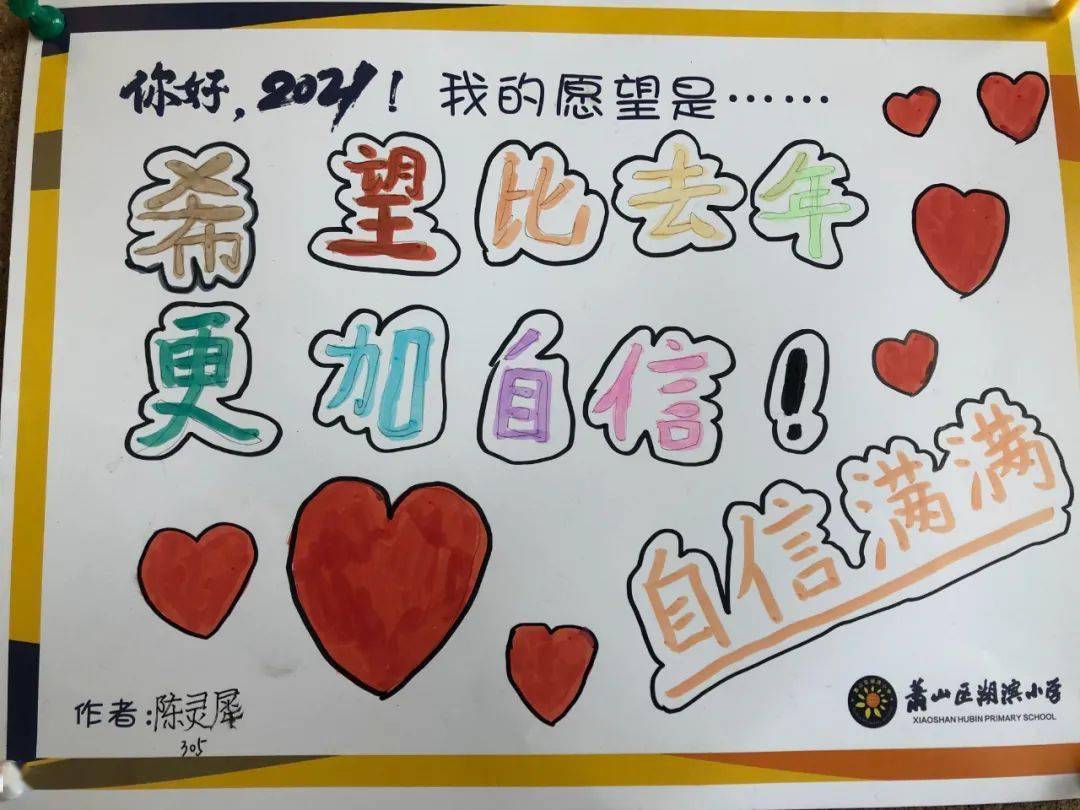 你好,2021! 我的愿望是……
希望比去年
更加自信!
自信满满
作者:陈灵犀
305
萧山区湖滨小学
XIAOSHAN HUBIN PRIMARY SCHOOL